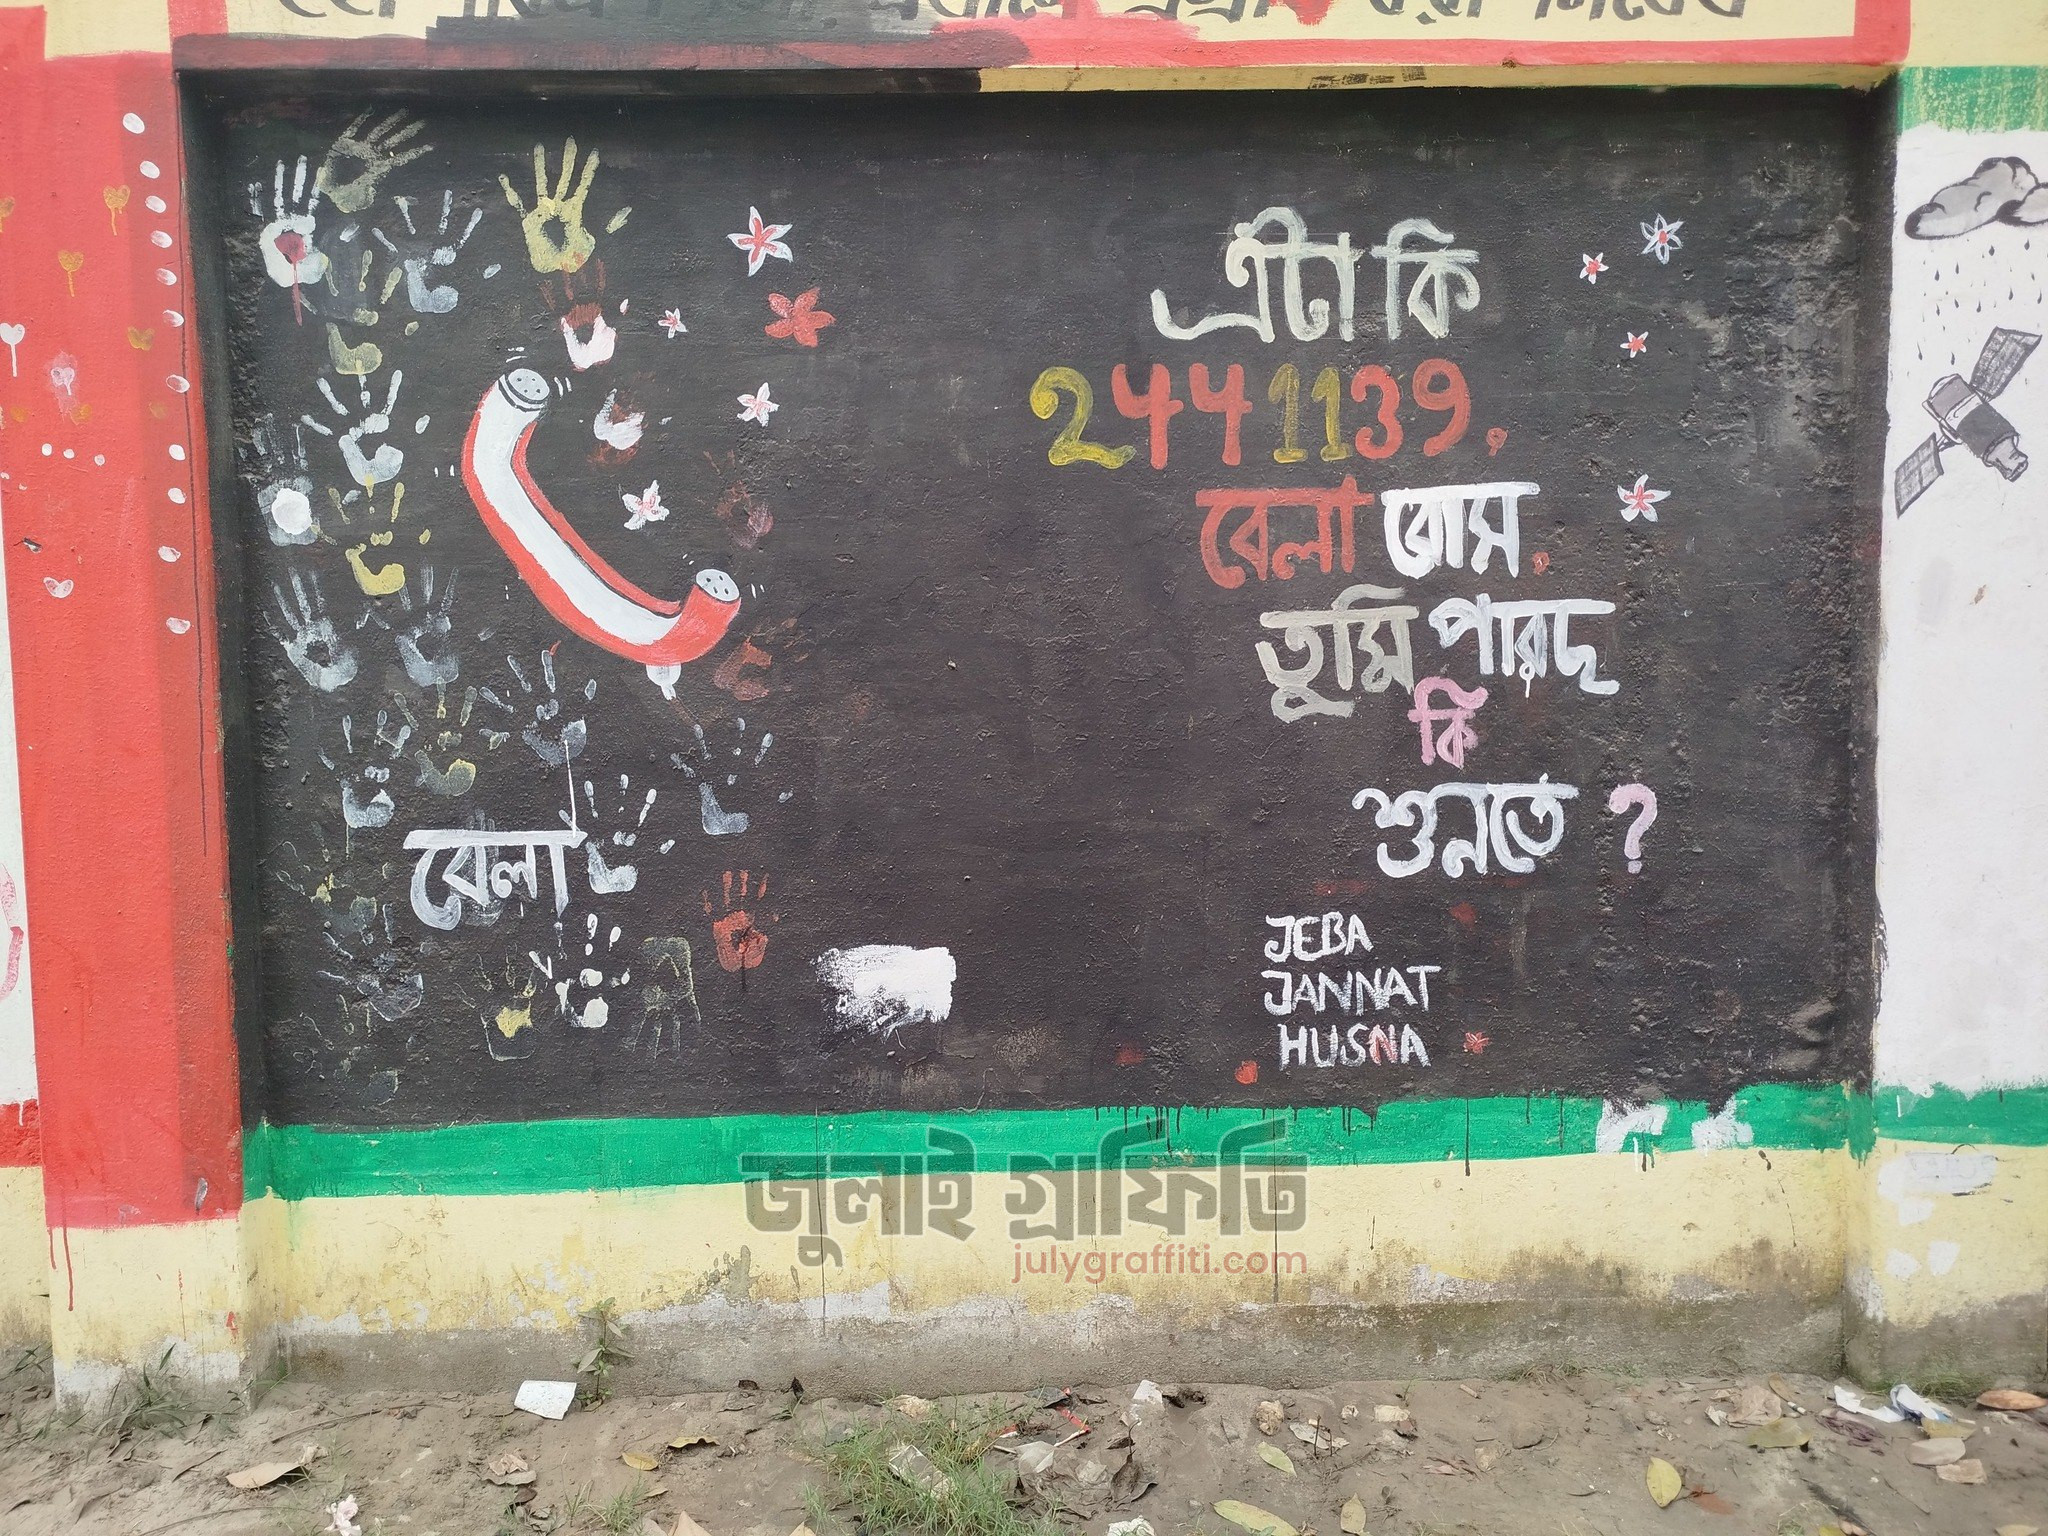 এটা কি
2441139.
বেলা বোস.
তুমি পারছ
কি
শুনতে ?
বেলা
JEBA
JANNAT
HUSNA
জুলাই গ্রাফিতি
julygraffiti.com